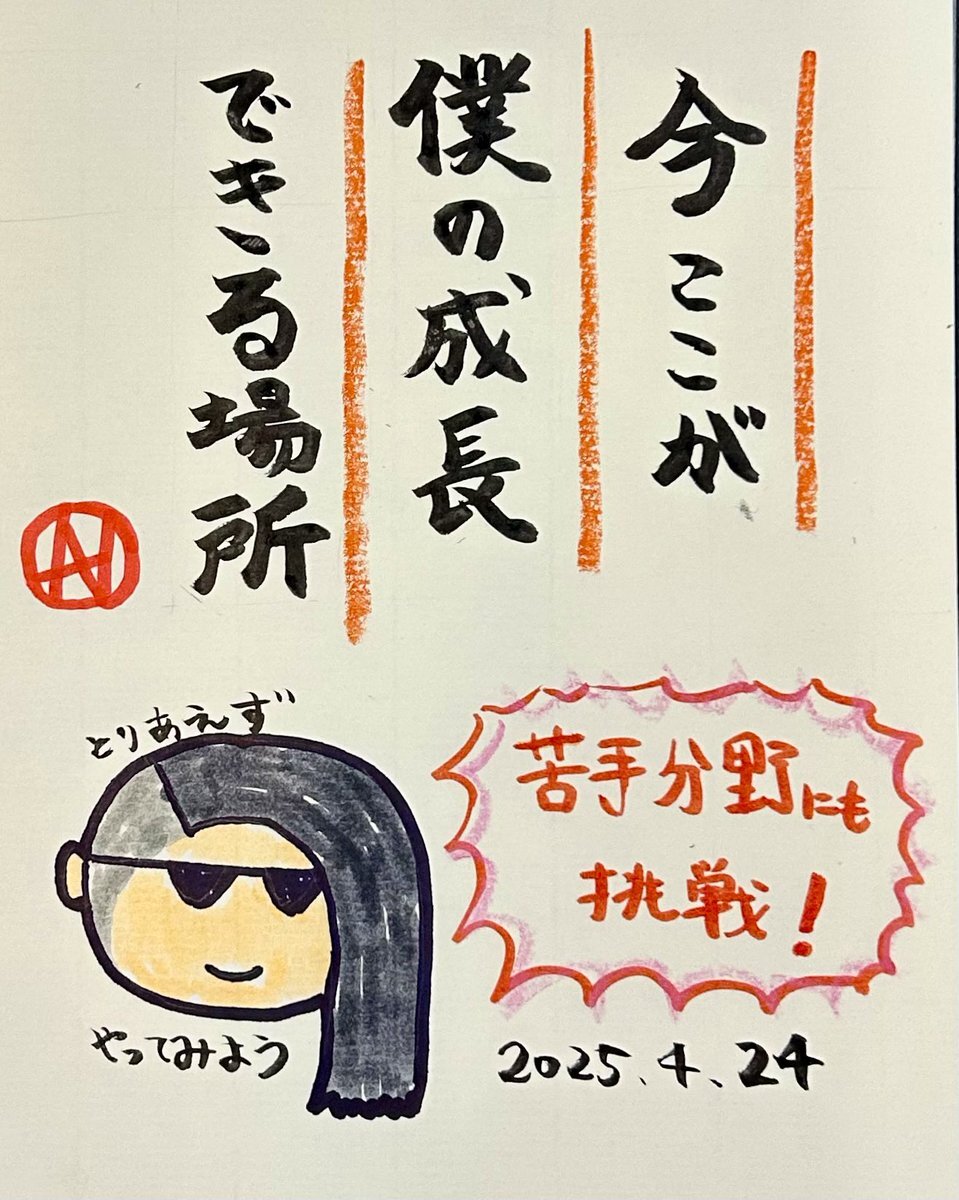 今ここが
僕の成長
できる場所
苦手分野にも
挑戦!
とりあえず
やってみよう
2025.4.24